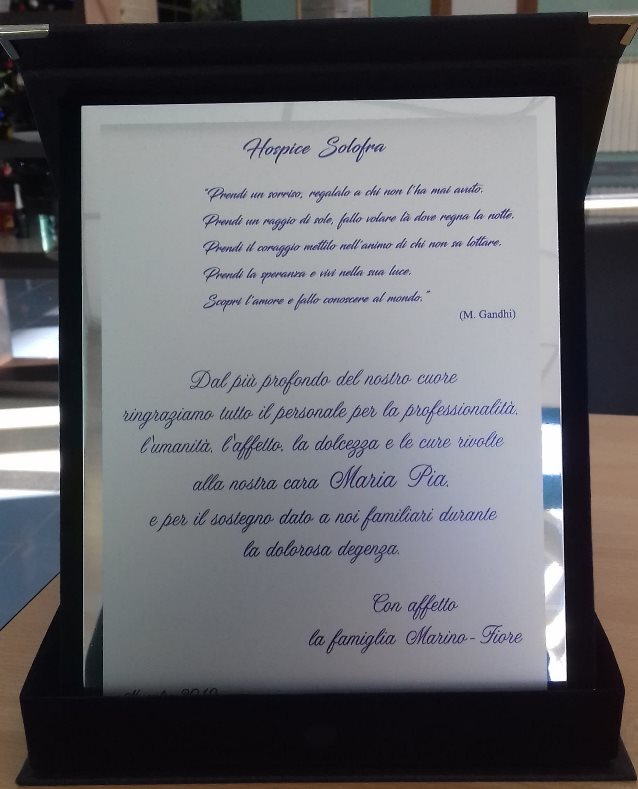 Hospice Solofra
"Prendi un sorriso, regalalo a chi non l'ha mai avuto.
Prendi un raggio di sole, fallo volare là dove regna la notte.
Prendi il coraggio mettilo nell'animo di chi non sa lottare.
Prendi la speranza e vivi nella sua luce.
Scopri l'amore e fallo conoscere al mondo."
(M. Gandhi)
Dal più profondo del nostro cuore
ringraziamo tutto il personale per la professionalità,
l'umanità, l'affetto, la dolcezza e le cure rivolte
alla nostra cara Maria Pia,
e per il sostegno dato a noi familiari durante
la dolorosa degenza.
Con affetto
la famiglia Marino - Fiore